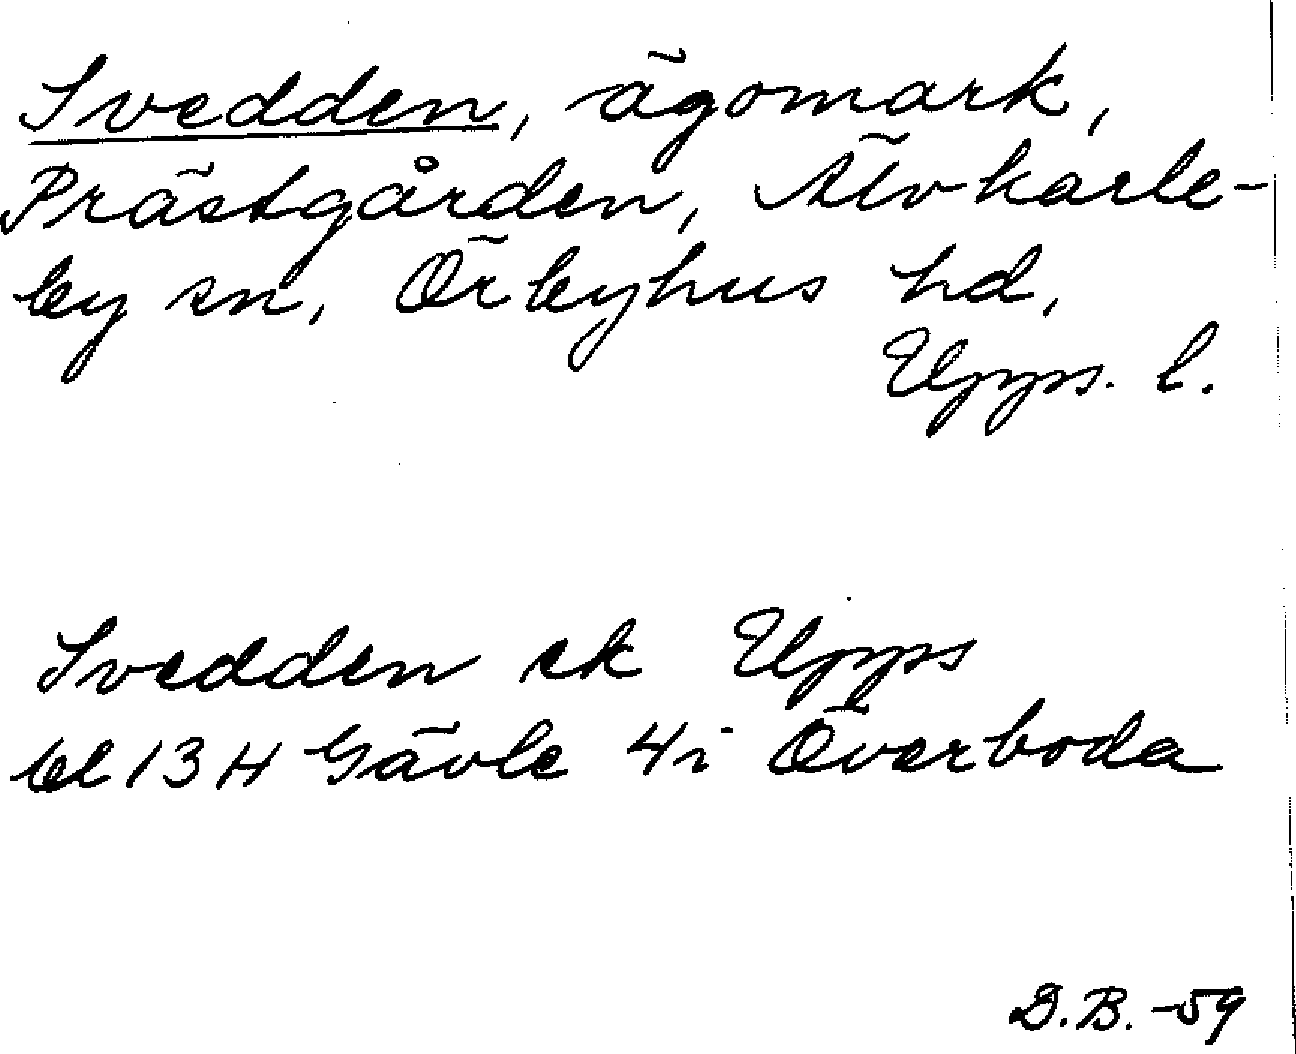 Svedden, ägomark,
Prästgården, Älvkarle-
by sn, Örbyhus hd,
Upps. l.
Svedden ek Upps
bl 13 H Gävle 4i Överboda
D.B. -59